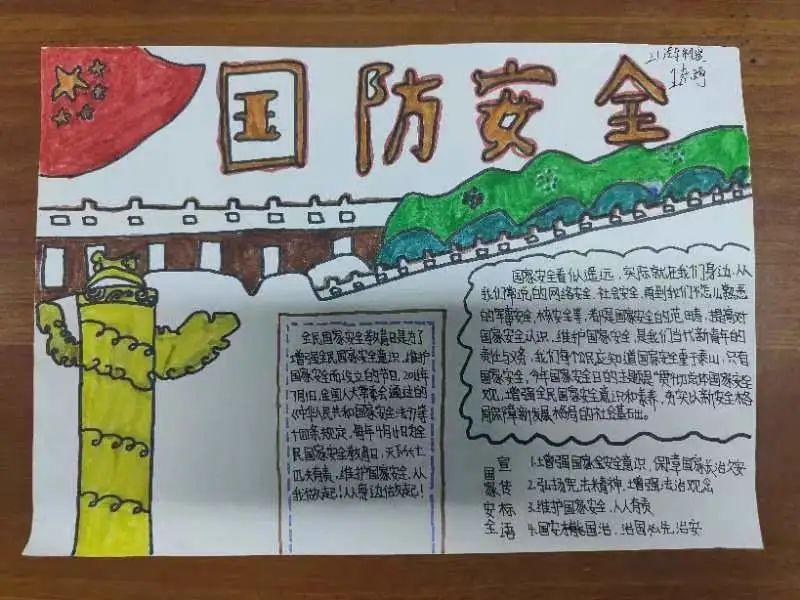 国防安全
全民国家安全教育日是为了
增强全民国家安全意识，维护
国家安全而设立的节日。201
7月1日，全国人大常委会通过的
《中华人民共和国国家安全法》第
十四条规定，每年4月15日为全
民国家安全教育日，天下兴亡
匹夫有责，维护国家安全，从
我做起！从身边做起！
国家安全看似遥远，实际就在我们身边，从
我们常说的网络安全，社会安全，再到我们不怎么熟悉
的军事安全，核安全等，都是国家安全的范畴，提高对
国家安全认识，维护国家安全，是我们当代新青年的
责任与义务，我们每个人民应知道国家安全重于泰山，只有
国家安全，今年国家安全日的主题是“贯彻总体国家安全
观，增强全民国家安全意识和素养，夯实以新安全格
局保障新发展格局的社会基础。
国家安全
宣传标语
1.增强国家安全意识，保障国家长治久安
2.弘扬宪法精神，增强法治观念
3.维护国家安全，人人有责
4.国安才能国治，治国必先治安